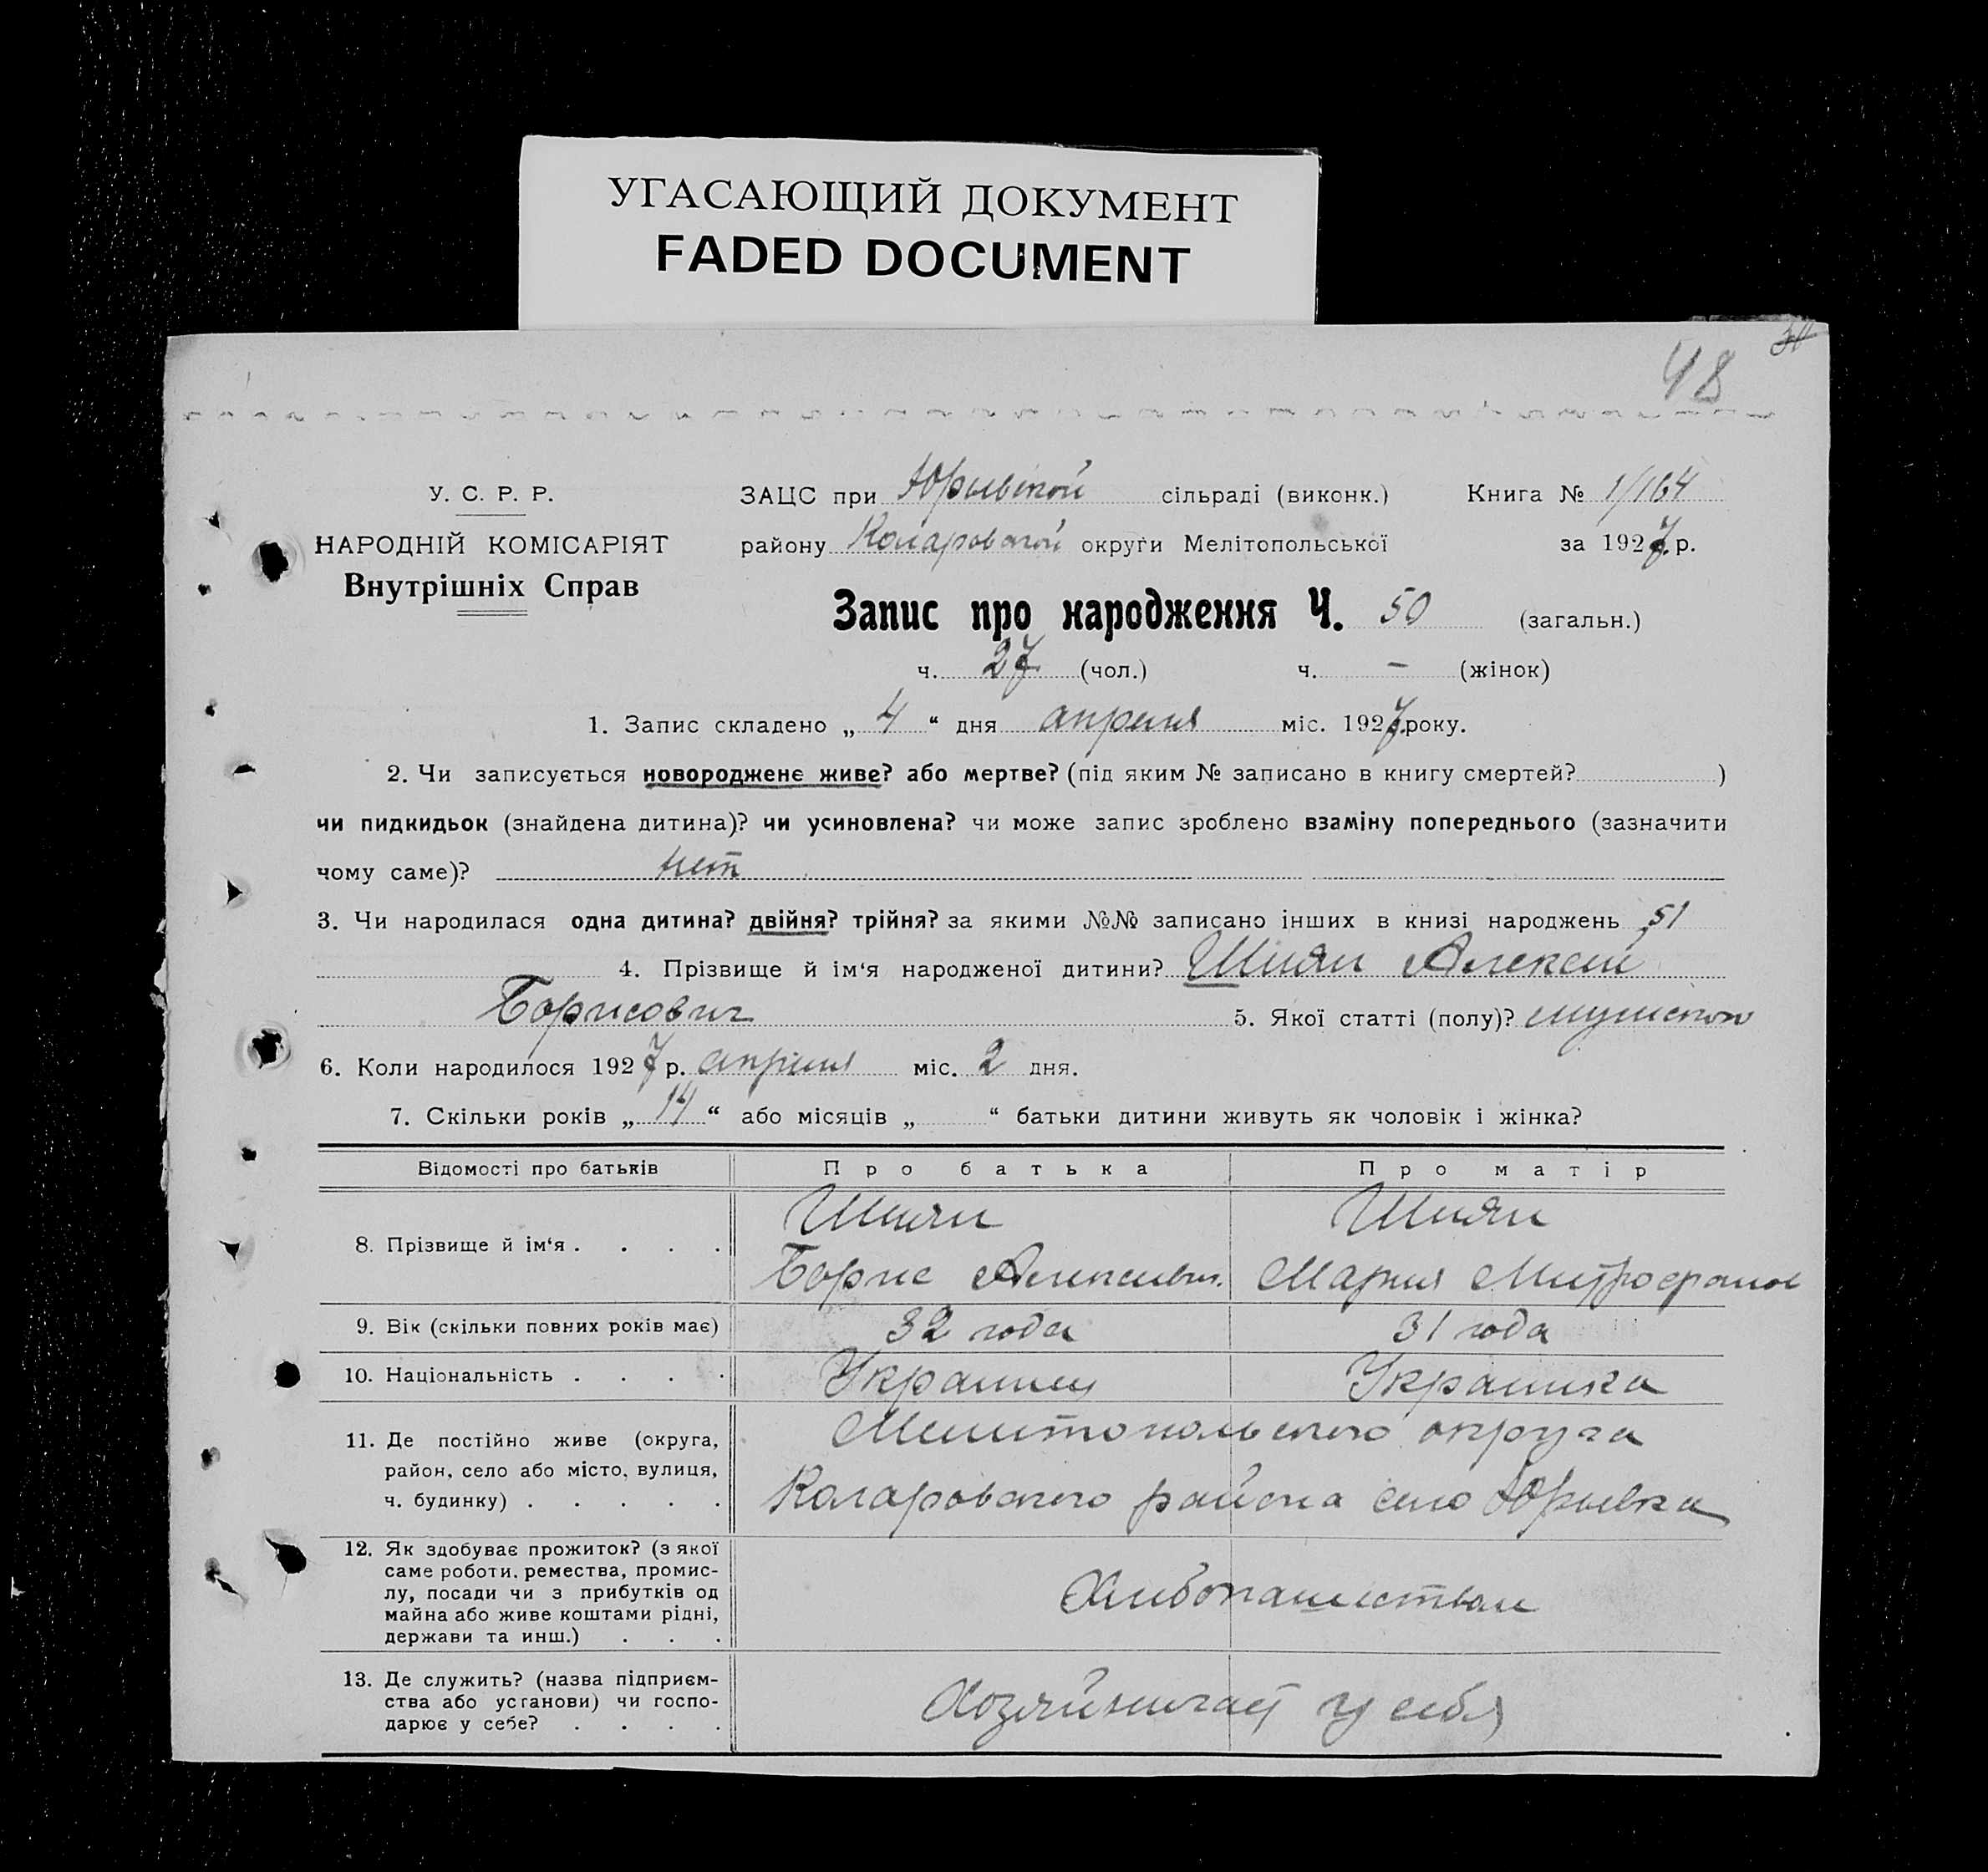 УГАСАЮЩИЙ ДОКУМЕНТ
FADED DOCUMENT
48
У. С. Р. Р.
НАРОДНІЙ КОМІСАРІЯТ
Внутрішніх Справ
ЗАЦС при Юрьевской сільраді (виконк.) Книга № 1/164
району Коларовской округи Мелітопольської за 1927 р.
Запис про народження Ч. 50 (загальн.)
ч. 27 (чол.) ч. – (жінок)
1. Запис складено „ 4 “ дня апреля міс. 1927 року.
2. Чи записується новороджене живе? або мертве? (під яким № записано в книгу смертей? )
чи пидкидьок (знайдена дитина)? чи усиновлена? чи може запис зроблено взаміну попереднього (зазначити
чому саме)? нет
3. Чи народилася одна дитина? двійня? трійня? за якими №№ записано інших в книзі народжень 51
4. Прізвище й ім‘я народженої дитини? Шиян Алексей
Борисович 5. Якої статті (полу)? мужского
6. Коли народилося 1927 р. апреля міс. 2 дня.
7. Скільки років „ 14 “ або місяців „ “ батьки дитини живуть як чоловік і жінка?
Відомості про батьків Про батька Про матір
8. Прізвище й ім‘я . . . . Шиян Шиян
Борис Алексеевич. Мария Митрофанов
9. Вік (скільки повних років має) 32 года 31 года
10. Національність . . . . Украинец Украинка
11. Де постійно живе (округа, район, село або місто, вулиця, ч. будинку) . . . . . Мелитопольского округа
Коларовского района село Юрьевка
12. Як здобуває прожиток? (з якої саме роботи, ремества, промислу, посади чи з прибутків од майна або живе коштами рідні, держави та инш.) . . . Хлибопашеством
13. Де служить? (назва підприємства або установи) чи господарює у себе? . . . . Хозяйничает у себя